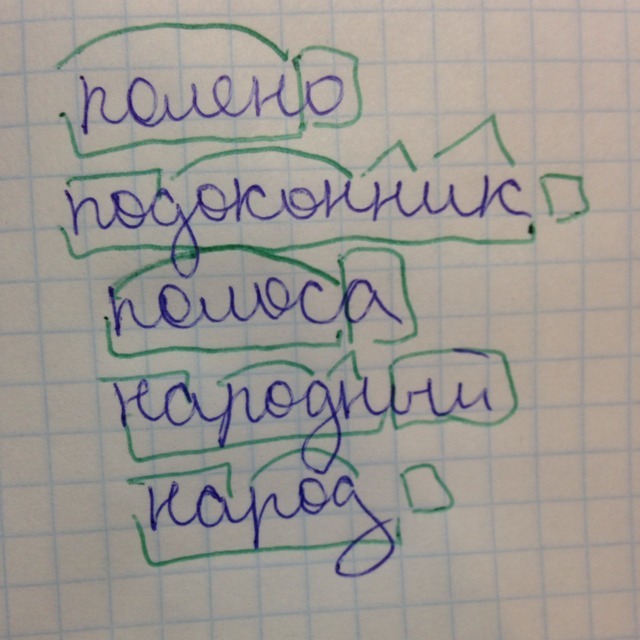 полено
подоконник
полоса
народный
народ